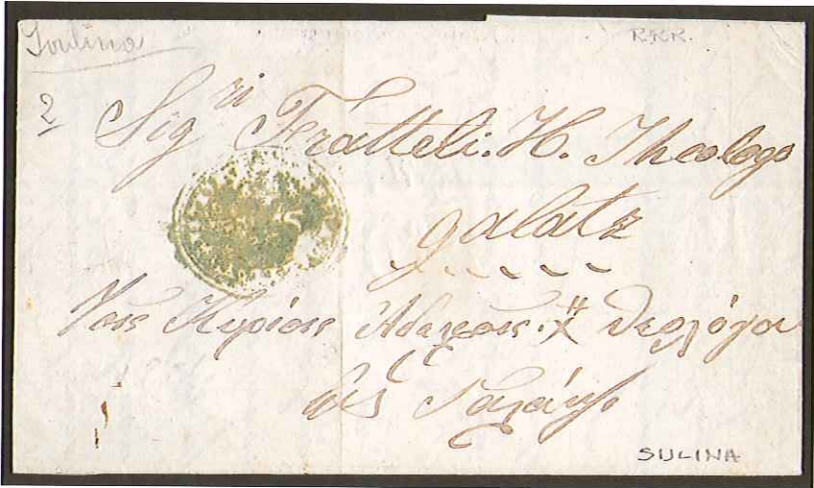 Soulina
R.R.R.
2
Sig.ri Fratelli. H. Theologo
galatz
Τοις Κυρίοις Αδελφοις. Χ" Θεολόγου
εις Γαλάτζι
SULINA